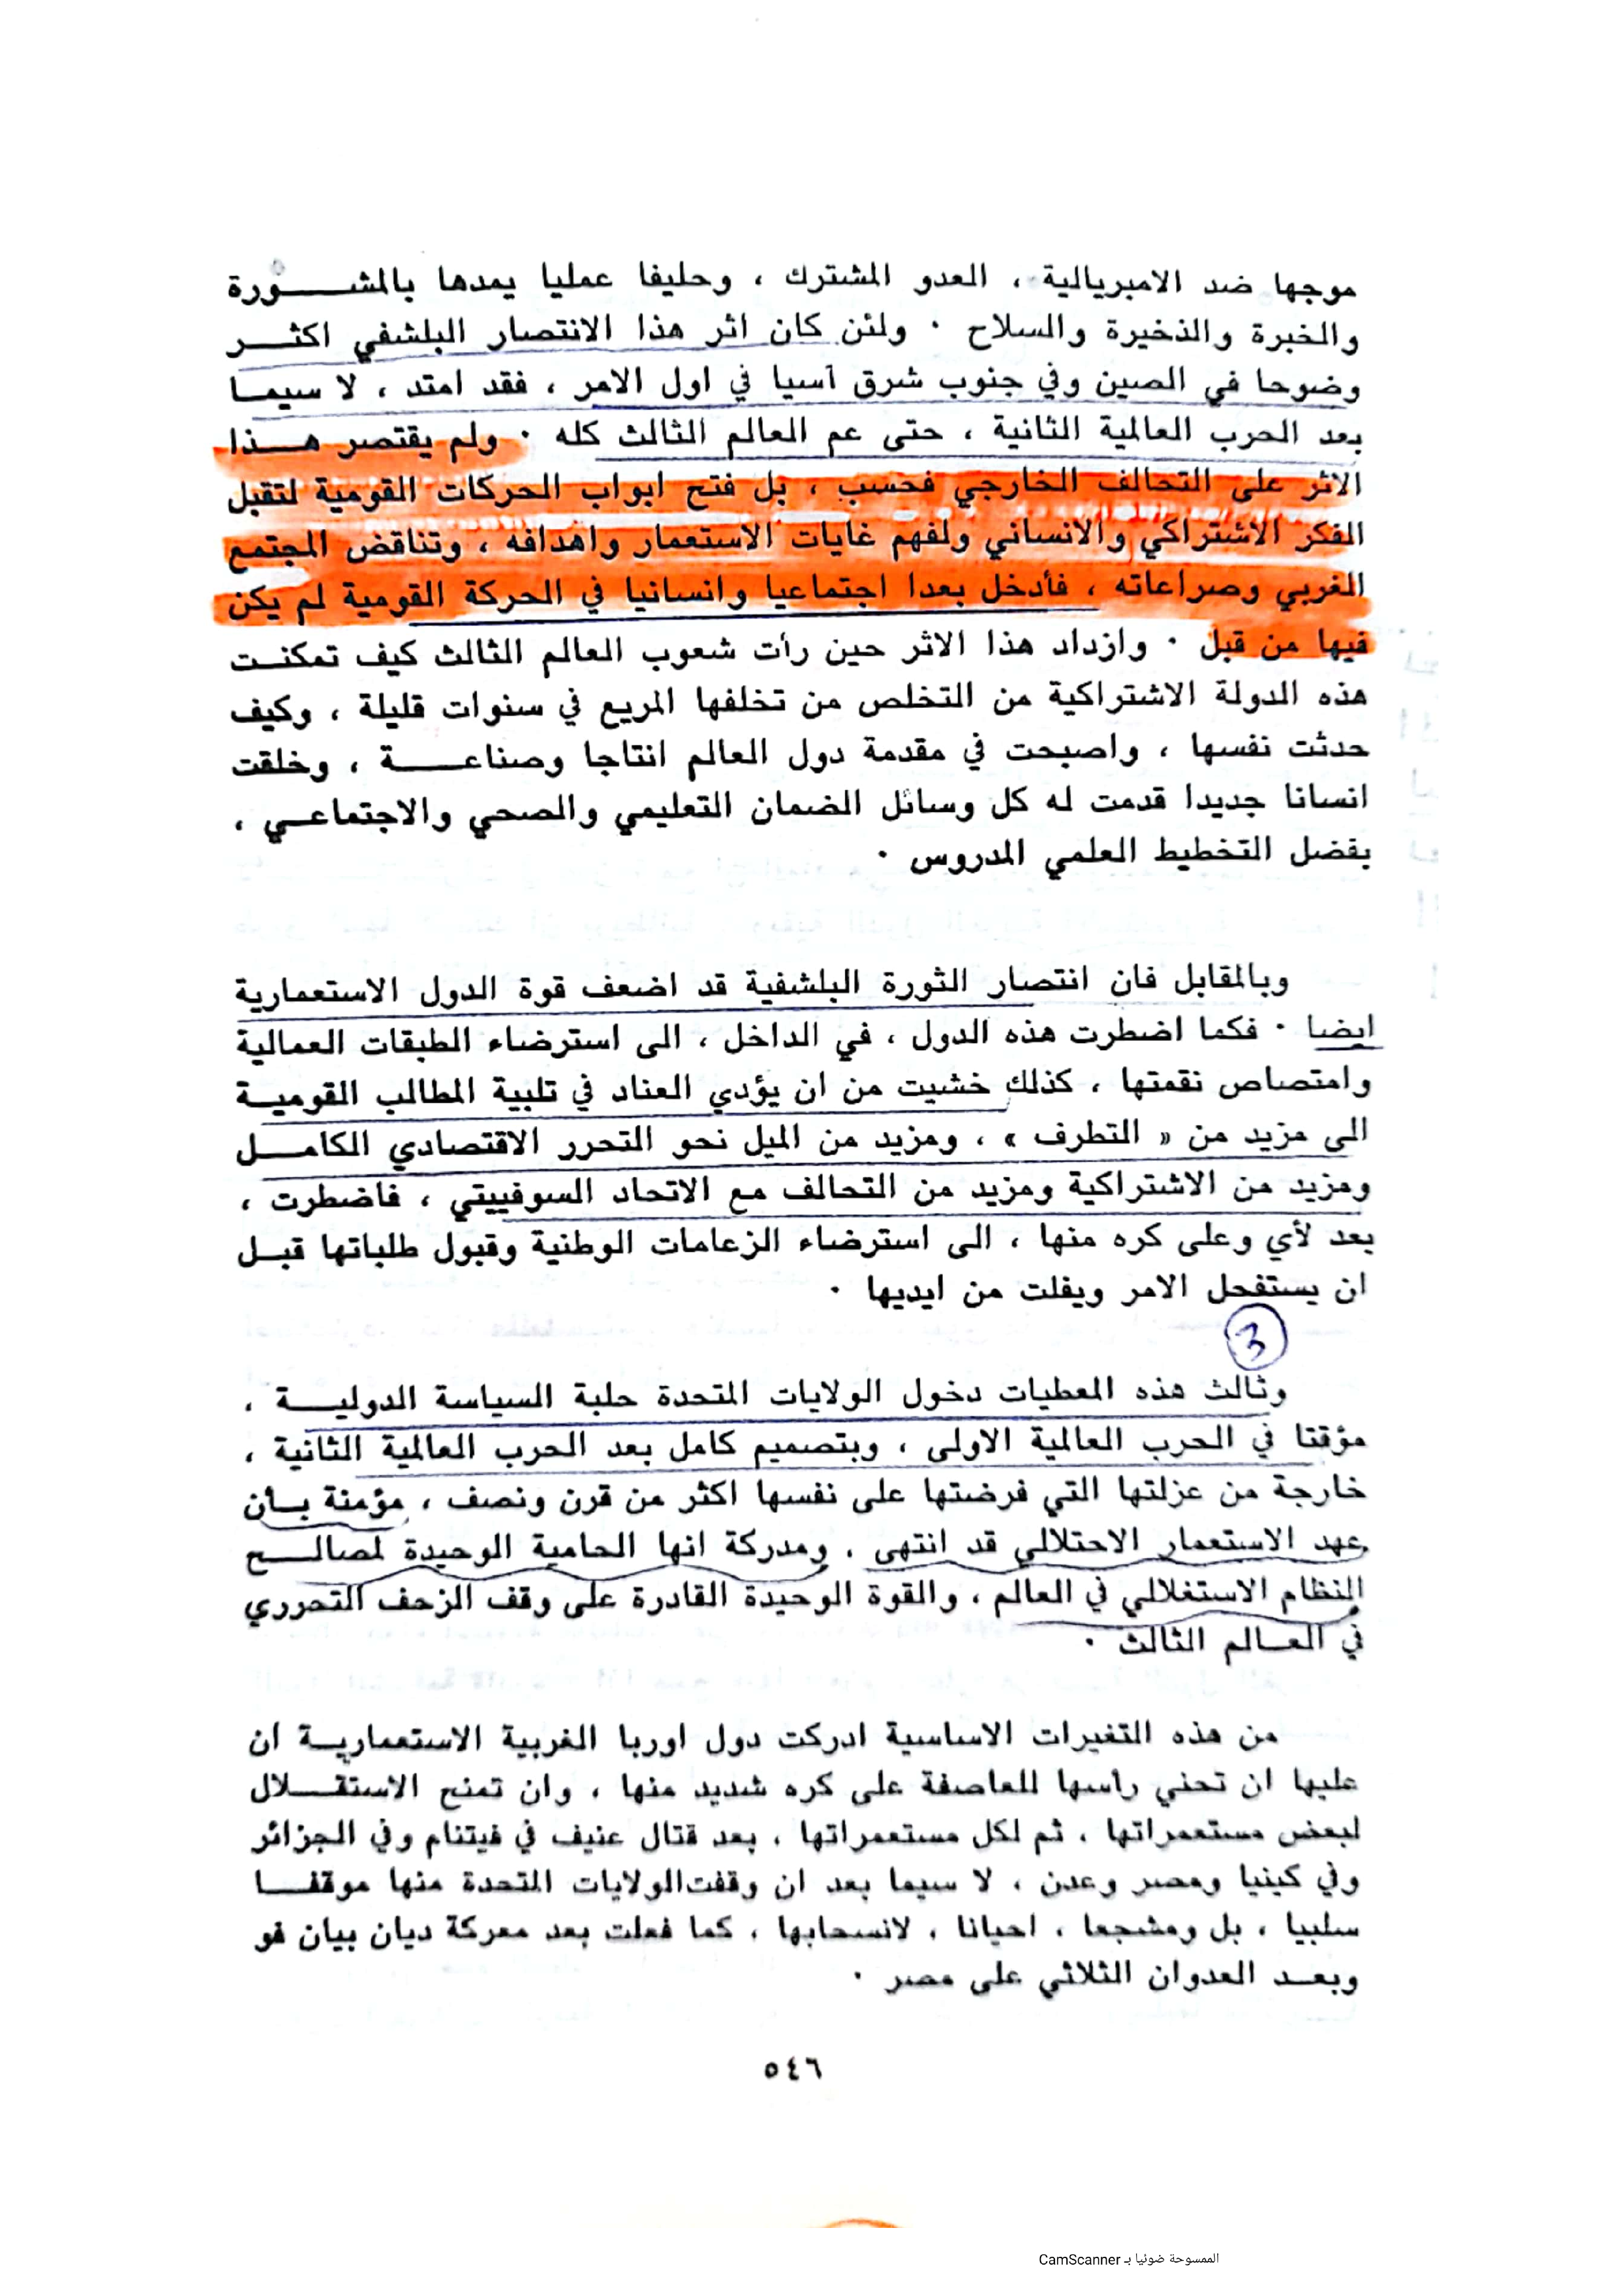 موجها ضد الامبريالية ، العدو المشترك ، وحليفا عمليا يمدها بالمشــــورة
والخبرة والذخيرة والسلاح ٠ ولئن كان اثر هذا الانتصار البلشفي اكثـــر
وضوحا في الصين وفي جنوب شرق آسيا في اول الامر ، فقد امتد ، لا سيمــا
بعد الحرب العالمية الثانية ، حتى عم العالم الثالث كله ٠ ولم يقتصر هـــذا
الاثر على التحالف الخارجي فحسب ، بل فتح ابواب الحركات القومية لتقبل
الفكر الاشتراكي والانساني ولفهم غايات الاستعمار واهدافه ، وتناقض المجتمع
الغربي وصراعاته ، فأدخل بعدا اجتماعيا وانسانيا في الحركة القومية لم يكن
فيها من قبل ٠ وازداد هذا الاثر حين رأت شعوب العالم الثالث كيف تمكنــت
هذه الدولة الاشتراكية من التخلص من تخلفها المريع في سنوات قليلة ، وكيف
حدثت نفسها ، واصبحت في مقدمة دول العالم انتاجا وصناعـــــة ، وخلقت
انسانا جديدا قدمت له كل وسائل الضمان التعليمي والصحي والاجتماعــي ،
بفضل التخطيط العلمي المدروس ٠
وبالمقابل فان انتصار الثورة البلشفية قد اضعف قوة الدول الاستعمارية
ايضا ٠ فكما اضطرت هذه الدول ، في الداخل ، الى استرضاء الطبقات العمالية
وامتصاص نقمتها ، كذلك خشيت من ان يؤدي العناد في تلبية المطالب القوميــة
الى مزيد من « التطرف » ، ومزيد من الميل نحو التحرر الاقتصادي الكامـــل
ومزيد من الاشتراكية ومزيد من التحالف مع الاتحاد السوفييتي ، فاضطرت ،
بعد لأي وعلى كره منها ، الى استرضاء الزعامات الوطنية وقبول طلباتها قبــل
ان يستفحل الامر ويفلت من ايديها ٠
3
وثالث هذه المعطيات دخول الولايات المتحدة حلبة السياسة الدوليـــة ،
مؤقتا في الحرب العالمية الاولى ، وبتصميم كامل بعد الحرب العالمية الثانية ،
خارجة من عزلتها التي فرضتها على نفسها اكثر من قرن ونصف ، مؤمنة بــأن
عهد الاستعمار الاحتلالي قد انتهى ، ومدركة انها الحامية الوحيدة لمصالـــح
النظام الاستغلالي في العالم ، والقوة الوحيدة القادرة على وقف الزحف التحرري
في العــالم الثالث ٠
من هذه التغيرات الاساسية ادركت دول اوربا الغربية الاستعماريــة ان
عليها ان تحني رأسها للعاصفة على كره شديد منها ، وان تمنح الاستقـــلال
لبعض مستعمراتها ، ثم لكل مستعمراتها ، بعد قتال عنيف في فيتنام وفي الجزائر
وفي كينيا ومصر وعدن ، لا سيما بعد ان وقفت الولايات المتحدة منها موقفــا
سلبيا ، بل ومشجعا ، احيانا ، لانسحابها ، كما فعلت بعد معركة ديان بيان فو
وبعــد العدوان الثلاثي على مصر ٠
٥٤٦
الممسوحة ضوئيا بـ CamScanner